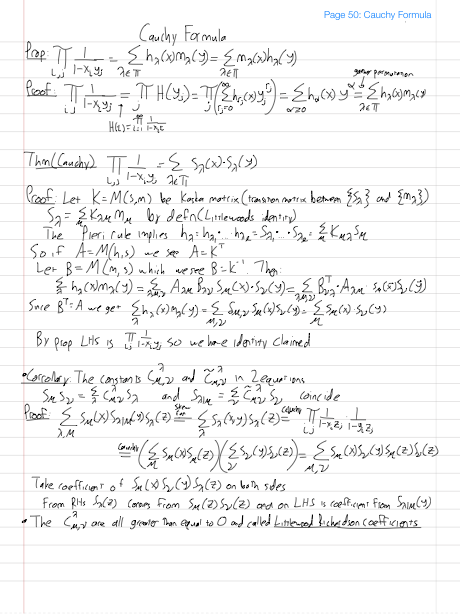 Page 50: Cauchy Formula
Cauchy Formula
Prop: ∏_{i,j} 1/(1-x_i y_j) = Σ_{λ∈Π} h_λ(x) m_λ(y) = Σ_{λ∈Π} m_λ(x) h_λ(y)
Proof: ∏_{i,j} 1/(1-x_i y_j) = ∏_j H(y_j) = ∏_j (Σ_{r_j=0}^∞ h_{r_j}(x) y_j^{r_j}) = Σ_{α≥0} h_α(x) y^α = Σ_{λ∈Π} h_λ(x) m_λ(y)
H(t) = ∏ 1/(1-x_i t)
Thm (Cauchy) ∏_{i,j} 1/(1-x_i y_j) = Σ_{λ∈Π} S_λ(x)·S_λ(y)
Proof: Let K = M(s,m) be Kostka matrix (transition matrix between {S_λ} and {m_λ})
S_λ = Σ_μ K_{λμ} m_μ by defn (Littlewoods identity)
The Pieri rule implies h_λ = h_{λ_1}·...·h_{λ_ℓ} = S_{λ_1}·...·S_{λ_ℓ} = Σ_μ K_{μλ} S_μ
So if A = M(h,s) we see A = K^T
Let B = M(m,s) which we see B = K^{-1}. Then:
Σ_λ h_λ(x) m_λ(y) = Σ_{λ,μ,ν} A_{λμ} B_{λν} S_μ(x)·S_ν(y) = Σ_{λ,μ,ν} B^T_{νλ}·A_{λμ} S_μ(x) S_ν(y)
Since B^T = A we get Σ_λ h_λ(x) m_λ(y) = Σ_{μ,ν} δ_{μ,ν} S_μ(x) S_ν(y) = Σ_μ S_μ(x)·S_μ(y)
By prop LHS is ∏_{i,j} 1/(1-x_i y_j) so we have identity claimed
• Corollary: The constants C^λ_{μ,ν} and C̃^λ_{μ,ν} in 2 equations
S_μ S_ν = Σ_λ C^λ_{μ,ν} S_λ and S_{λ/μ} = Σ_ν C̃^λ_{μ,ν} S_ν coincide
Proof: Σ_{λ,μ} S_μ(x) S_{λ/μ}(y) S_λ(z) = Σ_λ S_λ(x,y) S_λ(z) =^{Cauchy} ∏_{i,j} 1/(1-x_i z_j) · 1/(1-y_i z_j)
=^{Cauchy} (Σ_μ S_μ(x) S_μ(z)) (Σ_ν S_ν(y) S_ν(z)) = Σ_{μ,ν} S_μ(x) S_ν(y) S_μ(z) S_ν(z)
Take coefficient of S_μ(x) S_ν(y) S_λ(z) on both sides
From RHS S_λ(z) comes from S_μ(z) S_ν(z) and on LHS is coefficient from S_{λ/μ}(y)
• The C^λ_{μ,ν} are all greater than equal to 0 and called Littlewood Richardson coefficients